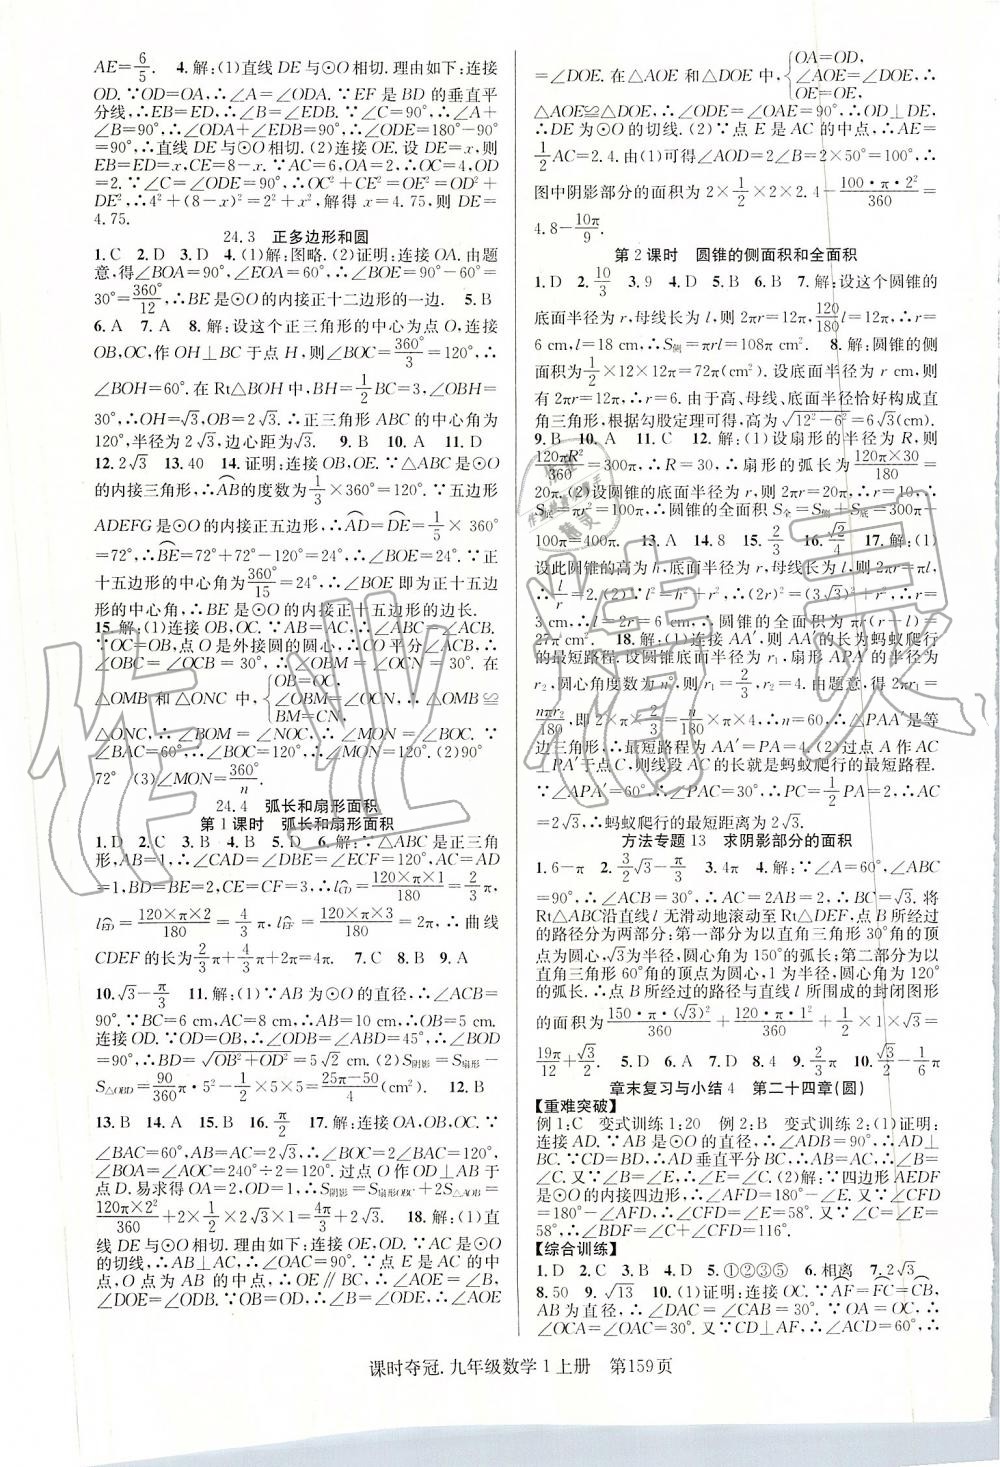 AE=6/5. 4.解:(1)直线DE与⊙O相切.理由如下:连接
OD.∵OD=OA,∴∠A=∠ODA.∵EF是BD的垂直平
分线,∴EB=ED,∴∠B=∠EDB.∵∠C=90°,∴∠A+
∠B=90°,∴∠ODA+∠EDB=90°,∴∠ODE=180°-90°
=90°,∴直线DE与⊙O相切.(2)连接OE.设DE=x,则
EB=ED=x,CE=8-x.∵AC=6,OA=2,∴OC=4,OD
=2.∵∠C=∠ODE=90°,∴OC²+CE²=OE²=OD²+
DE²,∴4²+(8-x)²=2²+x²,解得x=4.75,则DE=
4.75.
24.3 正多边形和圆
1.C 2.D 3.D 4.(1)解:图略.(2)证明:连接OA.由题
意,得∠BOA=90°,∠EOA=60°,∴∠BOE=90°-60°=
30°=360°/12,∴BE是⊙O的内接正十二边形的一边. 5.B
6.A 7.A 8.解:设这个正三角形的中心为点O,连接
OB,OC,作OH⊥BC于点H,则∠BOC=360°/3=120°,∴
∠BOH=60°.在Rt△BOH中,BH=1/2BC=3,∠OBH=
30°,∴OH=√3,OB=2√3.∴正三角形ABC的中心角为
120°,半径为2√3,边心距为√3. 9.B 10.A 11.D
12.2√3 13.40 14.证明:连接OB,OE.∵△ABC是⊙O
的内接三角形,∴AB⌒的度数为1/3×360°=120°.∵五边形
ADEFG是⊙O的内接正五边形,∴AD⌒=DE⌒=1/5×360°
=72°,∴BE⌒=72°+72°-120°=24°,∴∠BOE=24°.∵正
十五边形的中心角为360°/15=24°,∴∠BOE即为正十五边形
的中心角,∴BE是⊙O的内接正十五边形的边长.
15.解:(1)连接OB,OC.∵AB=AC,∴∠ABC=∠ACB.
∵OC=OB,点O是外接圆的圆心,∴CO平分∠ACB,∴
∠OBC=∠OCB=30°,∴∠OBM=∠OCN=30°.在
△OMB和△ONC中,{OB=OC,∠OBM=∠OCN,BM=CN,∴△OMB≌
△ONC,∴∠BOM=∠NOC,∴∠MON=∠BOC.∵
∠BAC=60°,∴∠BOC=120°,∴∠MON=120°.(2)90°
72° (3)∠MON=360°/n.
24.4 弧长和扇形面积
第1课时 弧长和扇形面积
1.D 2.C 3.B 4.B 5.D 6.解:∵△ABC是正三角
形,∴∠CAD=∠DBE=∠ECF=120°,AC=AB=BC=
AD=1,BD=BE=2,CE=CF=3,∴l_CD⌒=120×π×1/180=2/3π,
l_DE⌒=120×π×2/180=4/3π,l_EF⌒=120×π×3/180=2π,∴曲线
CDEF的长为2/3π+4/3π+2π=4π. 7.C 8.B 9.A
10.√3-π/3 11.解:(1)∵AB为⊙O的直径,∴∠ACB=
90°.∵BC=6 cm,AC=8 cm,∴AB=10 cm,∴OB=5 cm.
连接OD.∵OD=OB,∴∠ODB=∠ABD=45°,∴∠BOD
=90°,∴BD=√(OB²+OD²)=5√2 cm.(2)S阴影=S扇形-
S△OBD=90/360π·5²-1/2×5×5=(25π-50)/4(cm²). 12.B
13.B 14.A 15.A 16.π/2 17.解:连接OA,OB,OC.∵
∠BAC=60°,AB=AC=2√3,∴∠BOC=120°,∠AOC=
∠BOA=∠AOC=240°÷2=120°.过点O作OD⊥AB于
点D.易求得OA=2,OD=1,∴S阴影=S扇形OBC+2S△AOB=
120π×2²/360+2×1/2×2√3×1=4π/3+2√3. 18.解:(1)直
线DE与⊙O相切.理由:连接OE,OD.∵AC是⊙O
的切线,∴AB⊥AC,∴∠OAC=90°.∵点E是AC的中
点,O点为AB的中点,∴OE∥BC,∴∠AOE=∠B,
∠DOE=∠ODB.∵OB=OD,∴∠B=∠ODB,∴∠AOE
=∠DOE.在△AOE和△DOE中,{OA=OD,∠AOE=∠DOE,OE=OE,∴
△AOE≌△DOE,∴∠ODE=∠OAE=90°,∴OD⊥DE,
∴DE为⊙O的切线.(2)∵点E是AC的中点,∴AE=
1/2AC=2.4.由(1)可得∠AOD=2∠B=2×50°=100°,∴
图中阴影部分的面积为2×1/2×2×2.4-100·π·2²/360=
4.8-10π/9.
第2课时 圆锥的侧面积和全面积
1.D 2.10/3 3.9 4.D 5.B 6.B 7.解:设这个圆锥的
底面半径为r,母线长为l,则2πr=12π,120/180πl=12π,∴r=
6 cm,l=18 cm,∴S侧=πrl=108π cm². 8.解:圆锥的侧
面积=1/2×12×12π=72π(cm²).设底面半径为r cm,则
有2πr=12π,∴r=6.由于高、母线、底面半径恰好构成直
角三角形,根据勾股定理可得,高为√(12²-6²)=6√3(cm).
9.B 10.A 11.C 12.解:(1)设扇形的半径为R,则
120πR²/360=300π,∴R=30,∴扇形的弧长为120π×30/180=
20π.(2)设圆锥的底面半径为r,则2πr=20π,
∴r=10,∴圆锥的全面积S全=S侧+S底=300π+
100π=400π. 13.A 14.8 15.2/3 16.√2/4 17.解:(1)
设此圆锥的高为h,底面半径为r,母线长为l,则2πr=πl,∴
l/r=2.(2)∵l²=h²+r²,∴(2r)²=(3√3)²+r²,∴r=
3 cm,∴l=2r=6 cm,
27π cm². 18.解:(1)连接AA′,则AA′的长为蚂蚁爬行
的最短路程.设圆锥底面半径为r₁,扇形APA′的半径为
r₂,圆心角度数为n°,则r₁=2/3,r₂=4.由题意,得2πr₁=
nπr₂/180,即2π×2/3=nπ/180×4,∴n=60,∴△PAA′是等
边三角形,∴最短路程为AA′=PA=4.(2)过点A作AC
⊥PA′于点C,则线段AC的长就是蚂蚁爬行的最短路程.
∵∠APA′=60°,∴∠PAC=30°,∴PC=1/2PA=2,∴AC=
2√3,∴蚂蚁爬行的最短路程为2√3.
方法专题13 求阴影部分的面积
1.6-π 2.3/2√3-π/3 3.4π 4.解:∵∠A=60°,∠ABC
=90°,∴∠ACB=30°.∵AC=2AB=2,∴BC=√3.将
Rt△ABC沿直线l无滑动地滚动至Rt△DEF,点B所经过
的路径分为两部分:第一部分以直角三角形30°角的顶
点为圆心,√3为半径,圆心角为150°的弧长;第二部分为以
直角三角形60°角的顶点为圆心,1为半径,圆心角为120°
的弧长.∴点B所经过的路径与直线l所围成的封闭图形
的面积为150·π·(√3)²/360+120·π·1²/360+1/2×1×√3=
19π/12+√3/2. 5.D 6.A 7.D 8.4 9.2/3π 10.√3/2-1/6π
章末复习与小结4 第二十四章(圆)
【重难突破】
例1:C 变式训练1:20 例2:B 变式训练2:(1)证明:
连接AD.∵AB是⊙O的直径,∴∠ADB=90°,∴AD⊥
BC.∵CD=BD,∴AD垂直平分BC,∴AB=AC,∴∠B=
∠C.又∵∠B=∠E,∴∠E=∠C.(2)解:∵四边形AEDF
是⊙O的内接四边形,∴∠AFD=180°-∠E.又∵∠CFD
=180°-∠AFD,∴∠CFD=∠E=58°.又∵∠C=∠E=
58°,∴∠BDF=∠C+∠CFD=116°.
【综合训练】
1.D 2.C 3.B 4.D 5.①②③⑤ 6.相离 7.2√3
8.50 9.√13 10.(1)证明:连接OC.∵AF⌒=FC⌒=CB⌒,
AB为直径,∴∠DAC=∠CAB=30°.∵OA=OC,∴
∠OCA=∠CAB=30°.
课时夺冠.九年级数学1上册 第159页
作业精灵